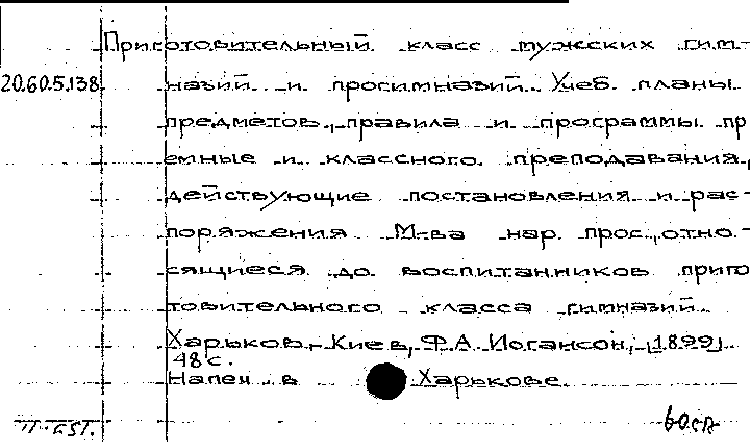 Приготовительный класс мужских гим-
20.60.5.138 назий и прогимназий. Учеб. планы
предметов, правила и программы при
емные и классного преподавания,
действующие постановления и рас-
поряжения М-ва нар. прос., отно-
сящиеся до воспитанников приго
товительного класса гимназий.
Харьков, - Киев, Ф.А. Иогансон, [1899]
48 с.
Напеч. в Харькове.